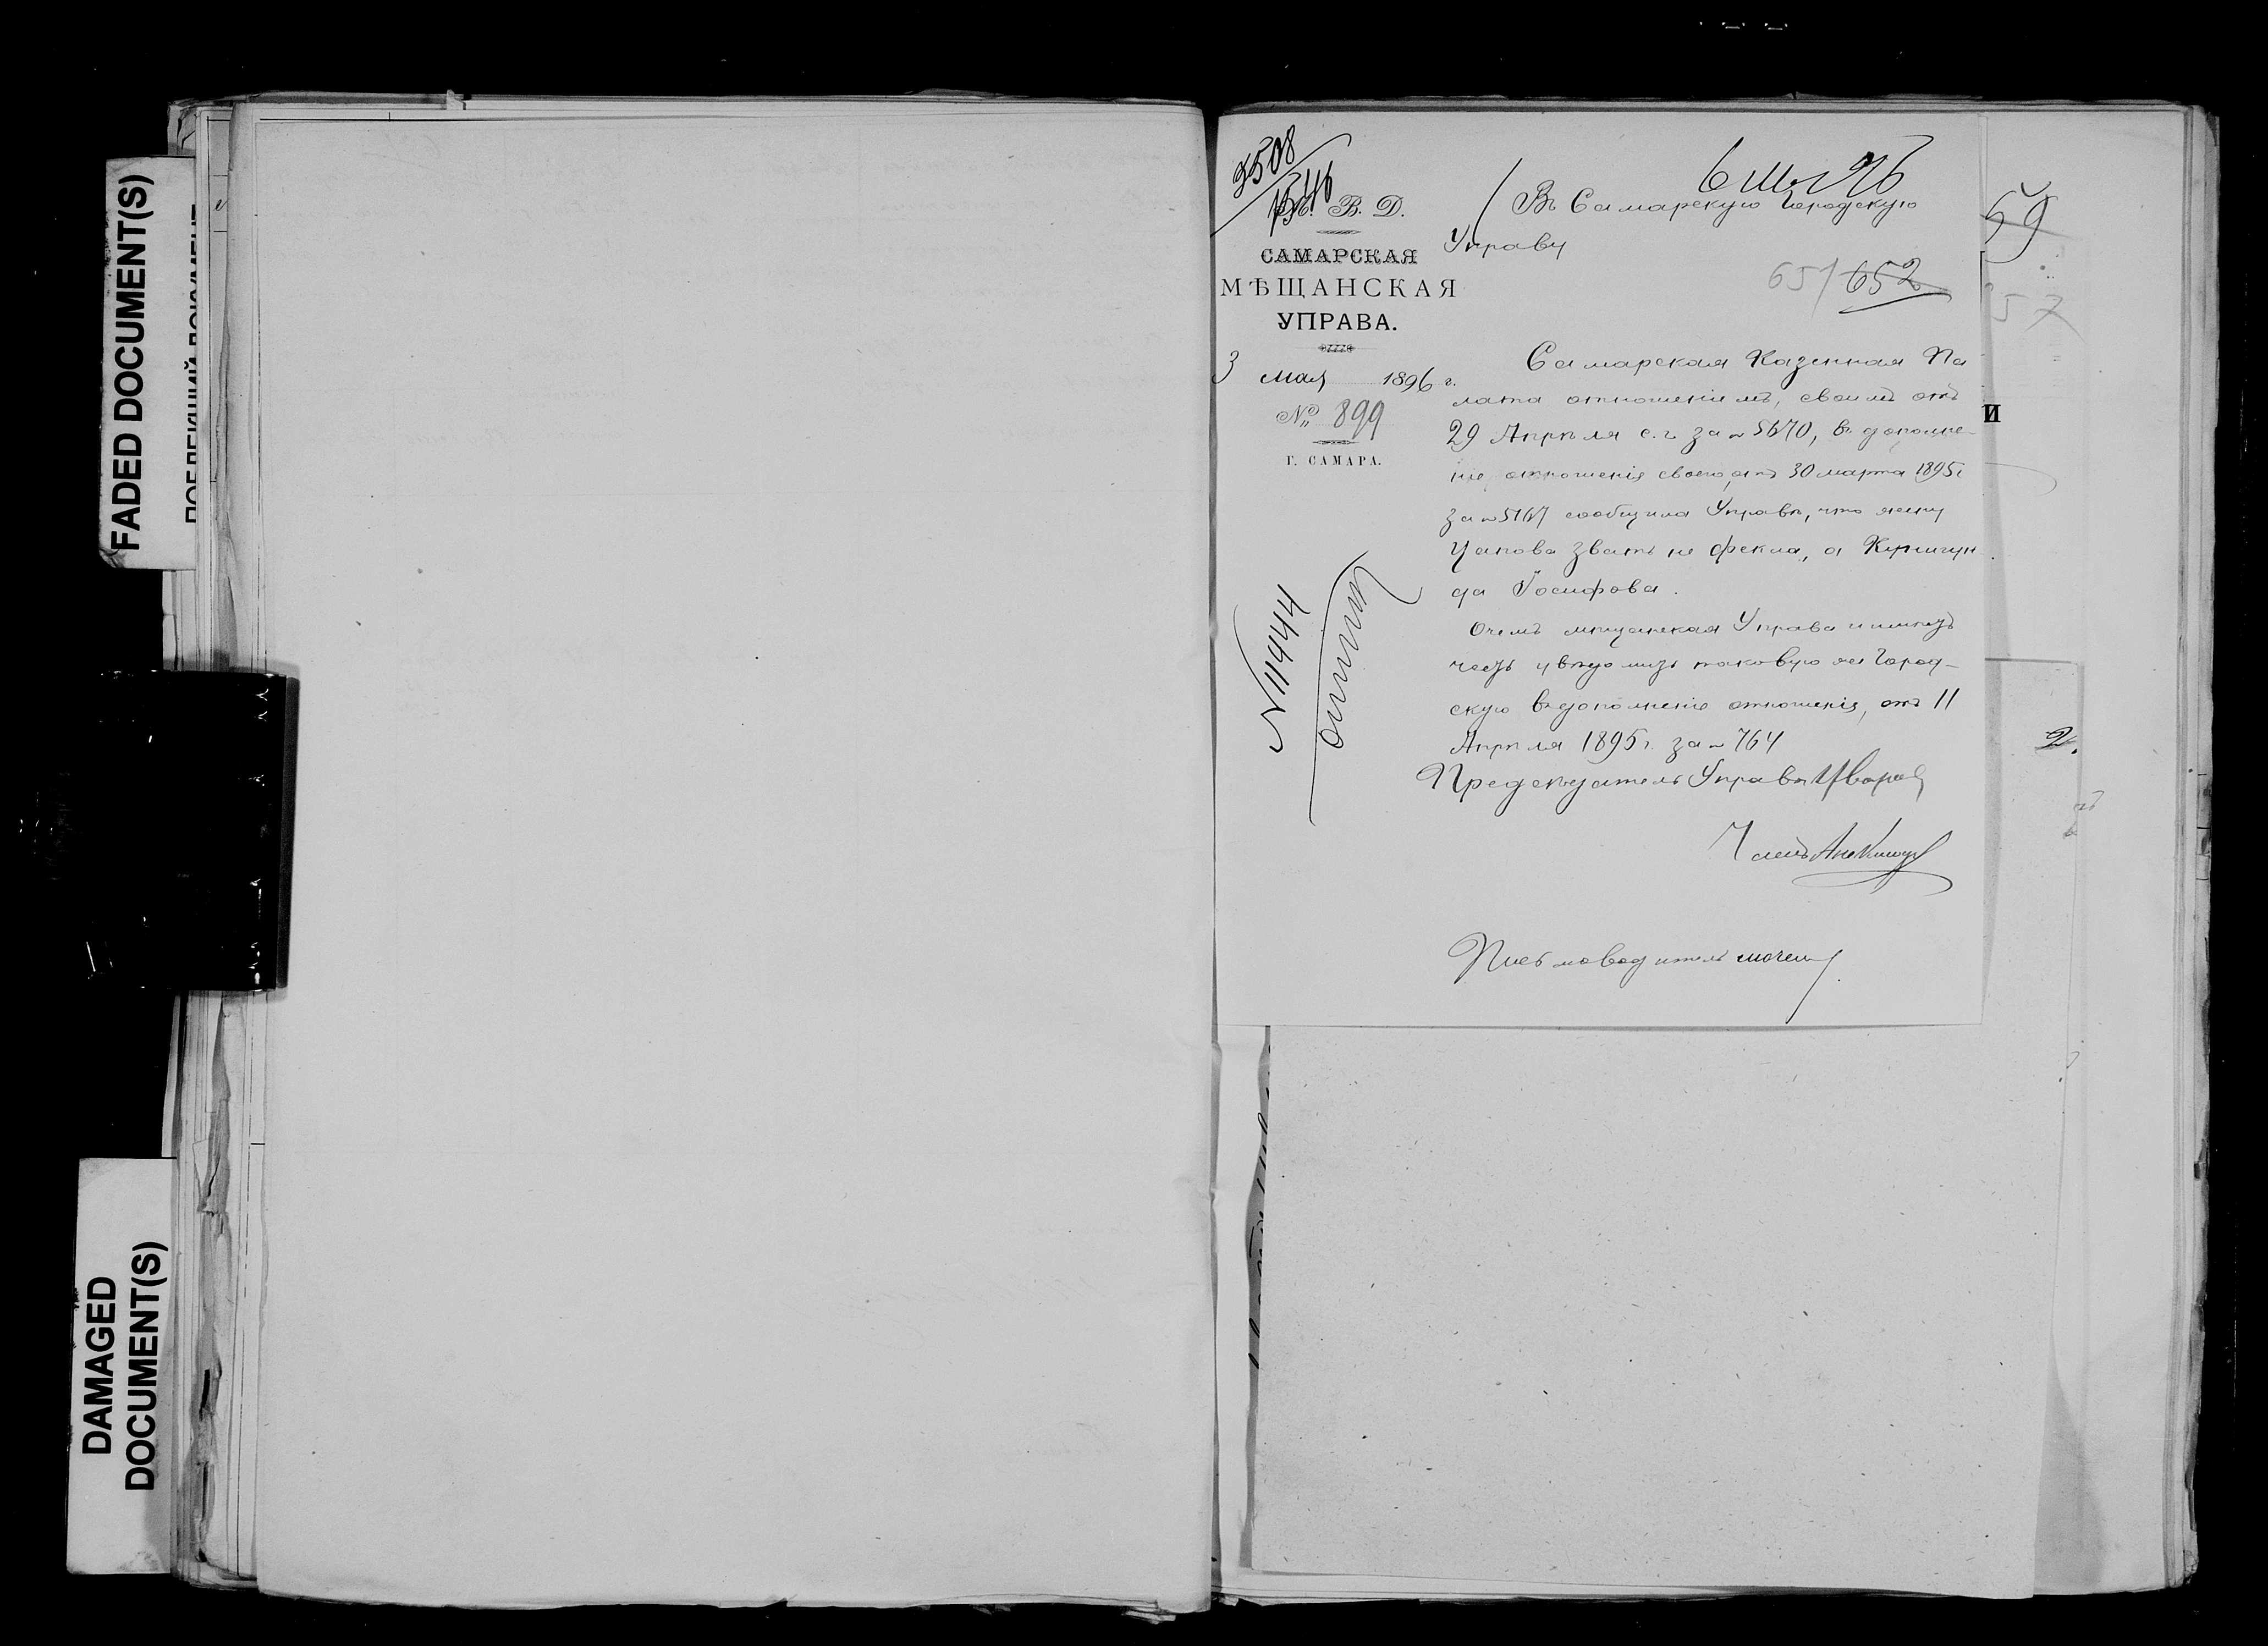 FADED DOCUMENT(S)
DAMAGED
DOCUMENT(S)
3508
М. В. Д.
САМАРСКАЯ
МѢЩАНСКАЯ
УПРАВА.
3 мая 1896 г.
№ 899
Г. САМАРА.
N 11444
Въ Самарскую Городскую
Управу
651 652
59
57
Самарская Казенная Па
лата отношеніемъ, своимъ отъ
29 Апрѣля с.г. за № 5670, въ дополне-
ніе отношенія своего, отъ 30 марта 1895 г
за № 5167 сообщила Управѣ, что жену
Цапова звать не Фекла, а
да Іосифова.
О чемъ мѣщанская Управа имѣетъ
честь увѣдомить таковую же Город-
скую въ дополненіе отношенія, отъ 11
Апрѣля 1895 г. за № 764
Предсѣдатель Управы
Членъ
Письмоводитель
И
2.